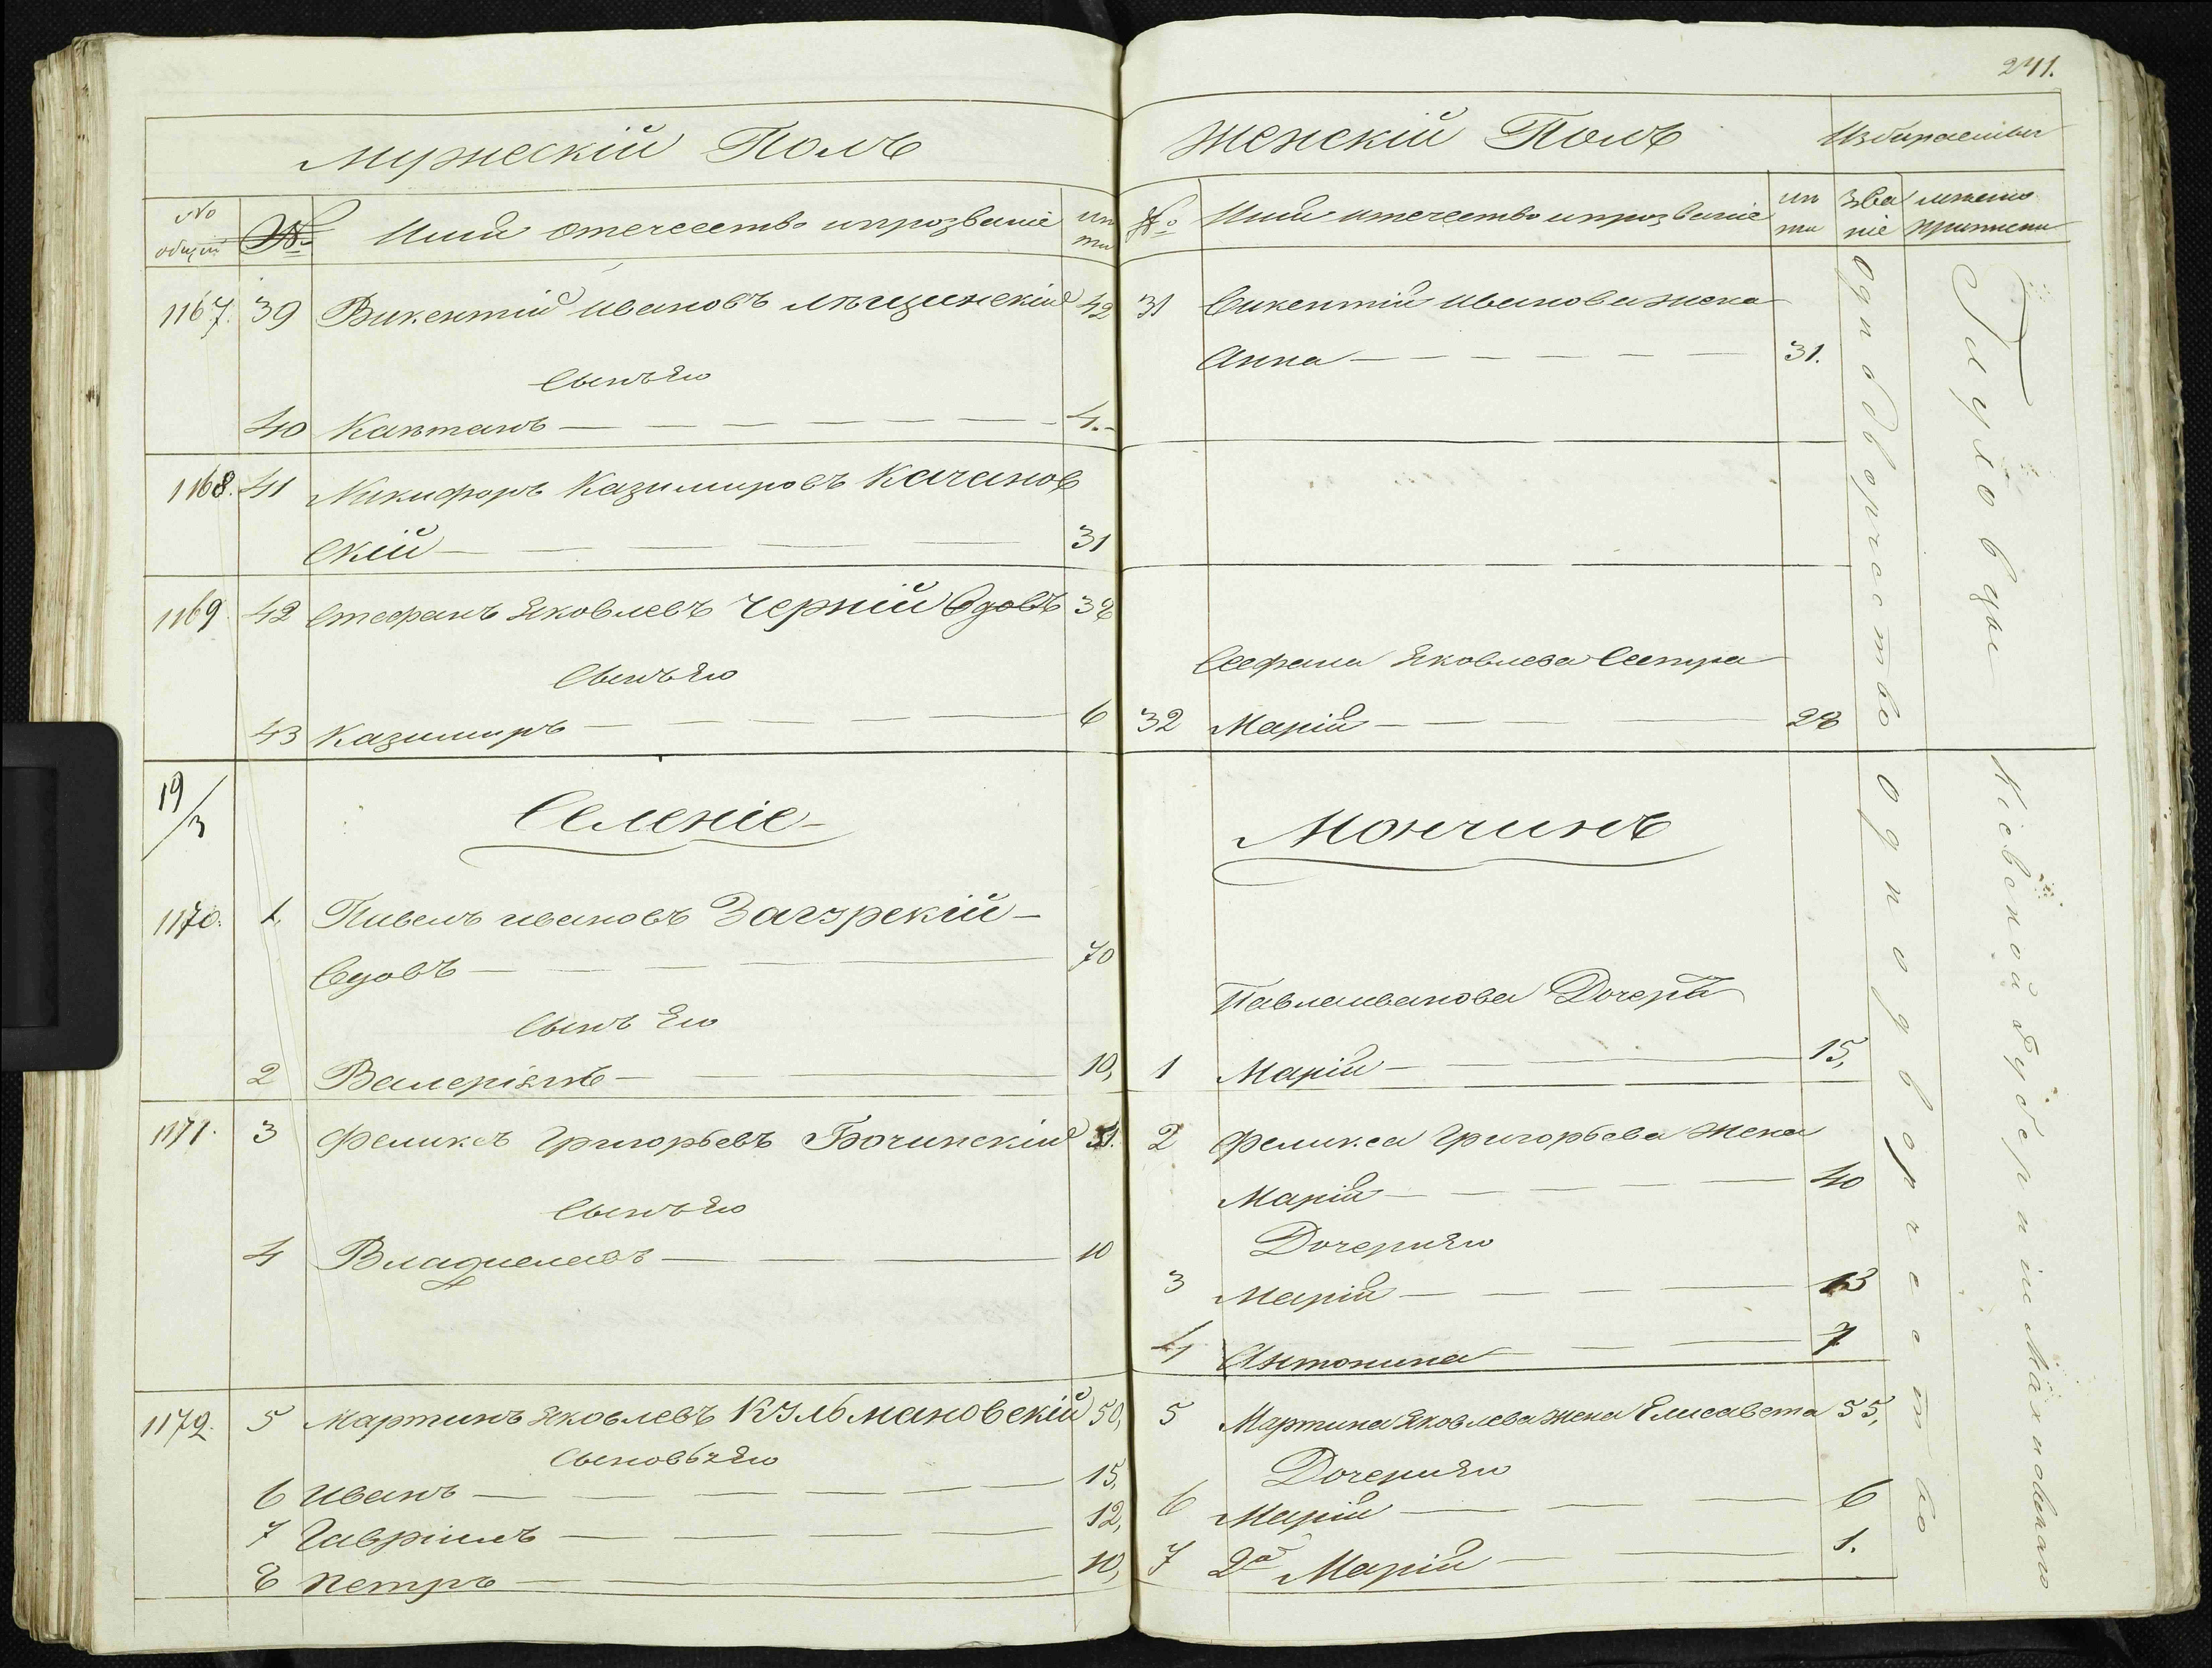 241.
Мужескій Полъ
№ общій
№
Имя отечество и прозваніе
лѣта
1167. 39 Викентій Ивановъ Лѣщинскій 42
Сынъ его
40 Каэтанъ 4.
1168. 41 Никифоръ Казимировъ Качанов
скій 31
1169. 42 Стефанъ Яковлевъ Черній Вдовъ 38
Сынъ его
43 Казимиръ 6
19/3
Селеніе
1170. 1. Павелъ Ивановъ Загурскій
Вдовъ 70
Сынъ Его
2 Валеріянъ 10,
1171. 3 Феликсъ Григорьевъ Бочинскій 51.
Сынъ его
4 Владиславъ 10
1172. 5 Мартинъ Яковлевъ Кульмановскій 50,
Сыновья его
6 Иванъ 15,
7 Гавріилъ 12,
8 Петръ 10,
Женскій Полъ
Избираемыи
№
Имя отечество и прозваніе
лѣта
Зва
ніе
мѣсто
приписки
31 Викентія Иванова жена
Анна 31.
Сефана Яковлева Сестра
32 Марія 28
Мончинъ
Павла Иванова Дочерь
1 Марія 15,
2 Феликса Григорьева Жена
Марія 40
Дочери его
3 Марія 13
4 Антонина 7
5 Мартина Яковлева жена Елисавета 55,
Дочери его
6 Марія 6
7 2я Марія 1.
Однодворчество
Глуховцы
Однодворчество
Кіевской Губерніи Махновскаго